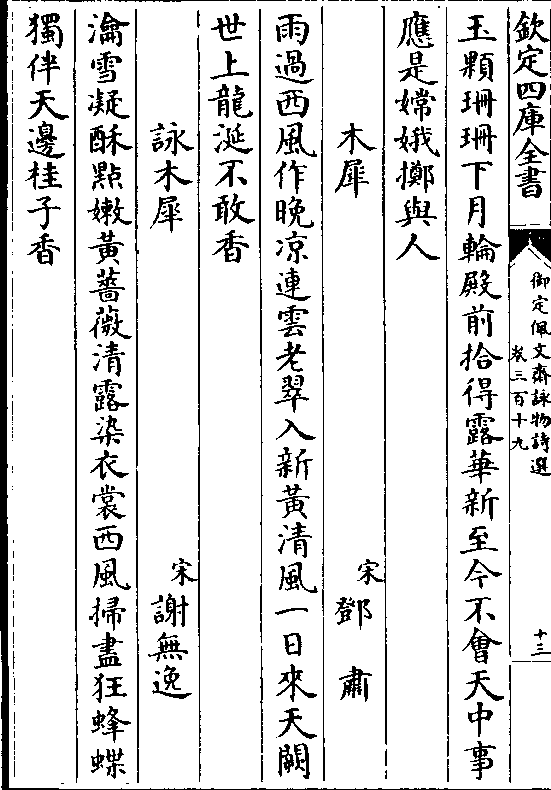 欽定四庫全書
御定佩文齋詠物詩選
卷三百十九
十三
玉顆珊珊下月輪殿前拾得露華新至今不會天中事
應是嫦娥擲與人
木犀
宋鄧肅
雨過西風作晚凉連雲老翠入新黃清風一日來天闕
世上龍涎不敢香
詠木犀
宋謝無逸
瀹雪凝酥點嫩黃薔薇清露染衣裳西風掃盡狂蜂蝶
獨伴天邊桂子香